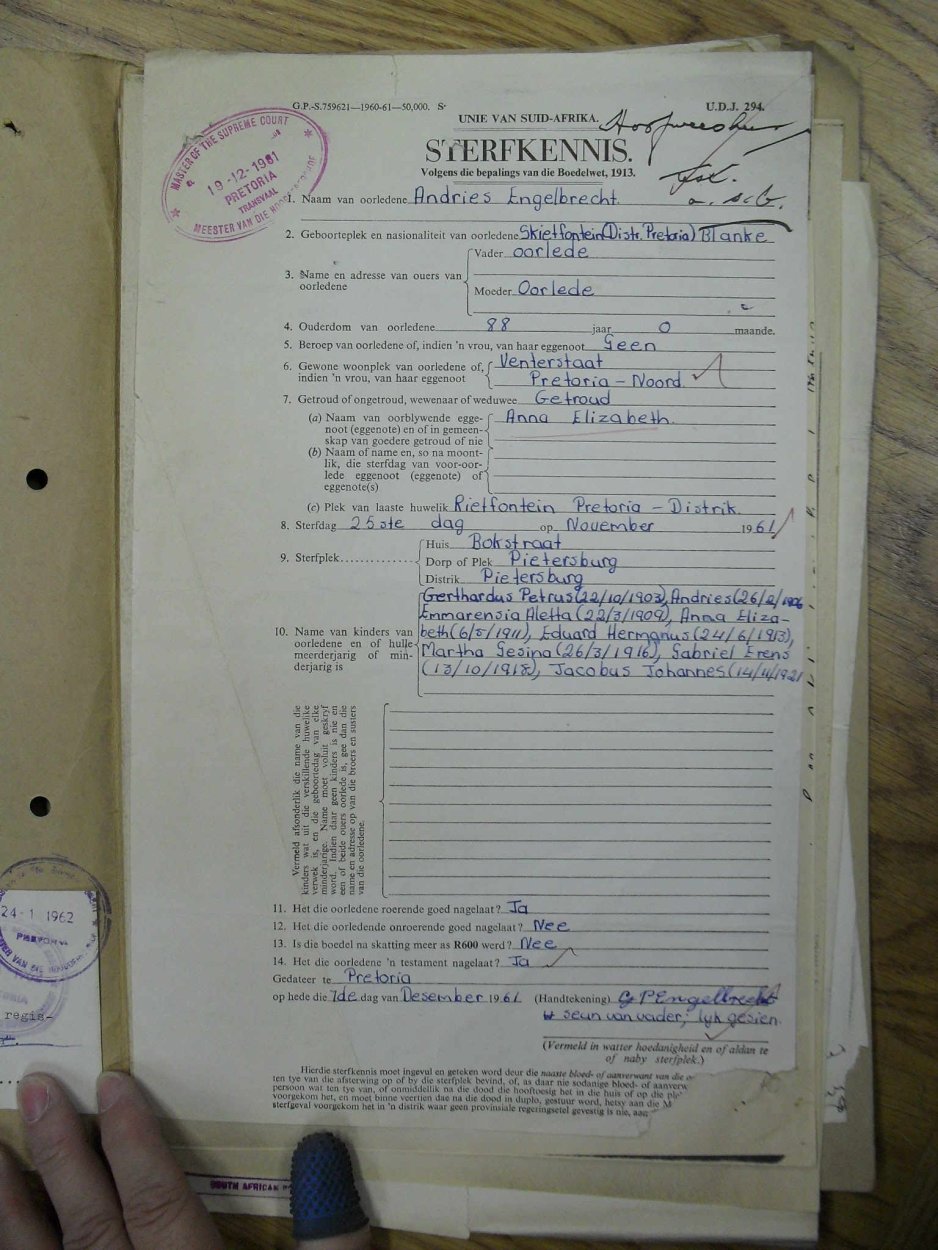 G.P.-S.759621—1960-61—50,000. S-
U.D.J. 294.
UNIE VAN SUID-AFRIKA.
STERFKENNIS.
Volgens die bepalings van die Boedelwet, 1913.
MASTER OF THE SUPREME COURT
19-12-1961
PRETORIA
TRANSVAAL
MEESTER VAN DIE
1. Naam van oorledene Andries Engelbrecht.
2. Geboorteplek en nasionaliteit van oorledene Skietfontein (Distr. Pretoria) Blanke
3. Name en adresse van ouers van oorledene
Vader oorlede
Moeder Oorlede
4. Ouderdom van oorledene 88 jaar 0 maande.
5. Beroep van oorledene of, indien 'n vrou, van haar eggenoot Geen
6. Gewone woonplek van oorledene of, Venterstaat
indien 'n vrou, van haar eggenoot Pretoria - Noord.
7. Getroud of ongetroud, wewenaar of weduwee Getroud
(a) Naam van oorblywende egge- Anna Elizabeth.
noot (eggenote) en of in gemeen-
skap van goedere getroud of nie
(b) Naam of name en, so na moont-
lik, die sterfdag van voor-oor-
lede eggenoot (eggenote) of
eggenote(s)
(c) Plek van laaste huwelik Rietfontein Pretoria - Distrik.
8. Sterfdag 25ste dag op November 1961
9. Sterfplek
Huis Bokstraat
Dorp of Plek Pietersburg
Distrik Pietersburg
10. Name van kinders van
oorledene en of hulle
meerderjarig of min-
derjarig is
Gerthardus Petrus (22/10/1903), Andries (26/2/1906
Emmarensia Aletta (22/3/1909), Anna Eliza-
beth (6/5/1911), Eduard Hermanus (24/6/1913),
Martha Gesina (26/3/1916), Gabriel Erens
(13/10/1918), Jacobus Johannes (14/11/1921
Vermeld afsonderlik die name van die
kinders wat uit die verskillende huwelike
verwek is, en die geboortedag van elke
minderjarige. Name moet voluit geskryf
word. Indien daar geen kinders is nie en
een of beide ouers oorlede is, gee dan die
name en adresse op van die broers en susters
van die oorledene.
11. Het die oorledene roerende goed nagelaat? Ja
12. Het die oorledende onroerende goed nagelaat? Nee
13. Is die boedel na skatting meer as R600 werd? Nee
14. Het die oorledene 'n testament nagelaat? Ja
Gedateer te Pretoria
op hede die 7de dag van Desember 1961 (Handtekening) G P Engelbrecht
seun van vader; lyk gesien.
(Vermeld in watter hoedanigheid en of aldan te
of naby sterfplek.)
Hierdie sterfkennis moet ingevul en geteken word deur die naaste bloed- of aanverwant van die
ten tye van die afsterwing op of by die sterfplek bevind, of, as daar nie sodanige bloed- of
persoon wat ten tye van, of onmiddellik na die dood die hooftoesig het in die huis of op die
voorgekom het, en moet binne veertien dae na die dood in duplo, gestuur word, hetsy aan die M
sterfgeval voorgekom het in 'n distrik waar geen provinsiale regeringsetel gevestig is nie,
24-1 1962
regis-
SOUTH AFRICAN